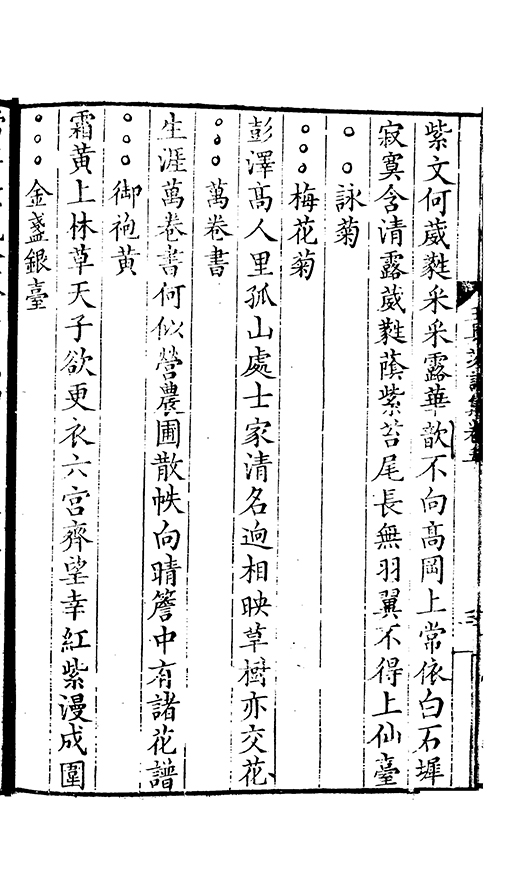 紫文何葳蕤采采露華歆不向髙岡上常依白石墀
寂寞含清露葳蕤蔭紫苔尾長無羽翼不得上仙臺
詠菊
梅花菊
彭澤髙人里孤山處士家清名逈相映草樹亦交花
萬卷書
生涯萬卷書何似營農圃散帙向晴簷中有諸花譜
御袍黄
霜黄上林草天子欲更衣六宫齊望幸紅紫漫成圍
金盞銀臺